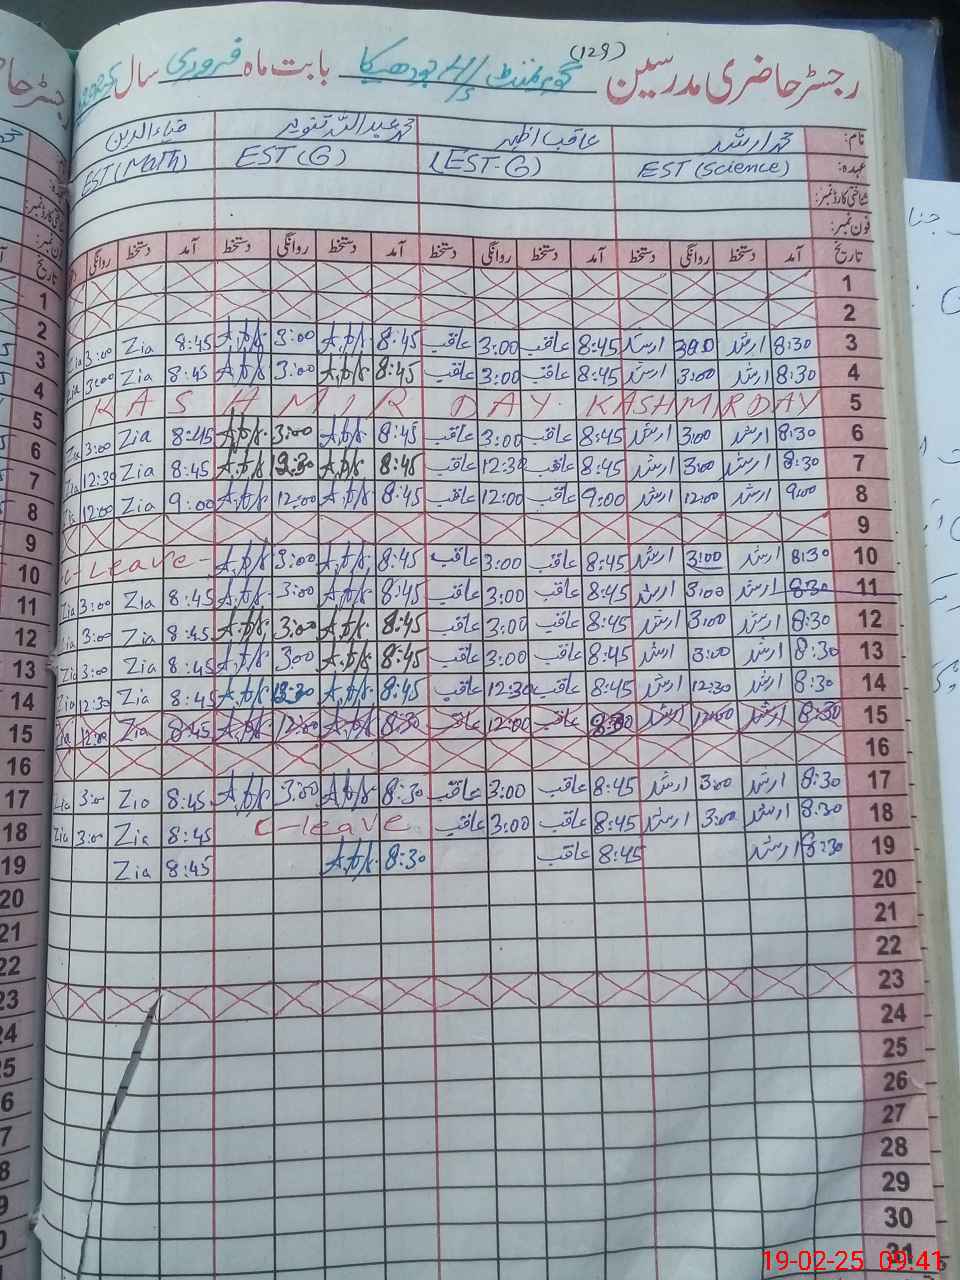 (129)
رجسٹر حاضری مدرسین گورنمنٹ بابت ماہ فروری سال
نام: محمد ارشد عاقب اظہر محمد عبداللہ تنویر ضیاء الدین
عہدہ: EST (Science) EST-G) EST (G) EST (Math)
شناختی کارڈ نمبر:
فون نمبر:
تاریخ آمد دستخط روانگی دستخط آمد دستخط روانگی دستخط آمد دستخط روانگی دستخط آمد دستخط روانگی
1
2
3 8:30 ارشد 3:00 ارشد 8:45 عاقب 3:00 عاقب 8:45 3:00 8:45 Zia 3:00 Zia
4 8:30 ارشد 3:00 ارشد 8:45 عاقب 3:00 عاقب 8:45 3:00 8:45 Zia 3:00 Zia
5 KASHMIR DAY KASHMIR DAY
6 8:30 ارشد 3:00 ارشد 8:45 عاقب 3:00 عاقب 8:45 3:00 8:45 Zia 3:00 Zia
7 8:30 ارشد 3:00 ارشد 8:45 عاقب 12:30 عاقب 8:45 8:45 Zia 12:30 Zia
8 9:00 ارشد 12:00 ارشد 9:00 عاقب 12:00 عاقب 8:45 12:00 9:00 Zia 12:00 Zia
9
10 8:30 ارشد 3:00 ارشد 8:45 عاقب 3:00 عاقب 8:45 3:00 C-Leave
11 8:30 ارشد 3:00 ارشد 8:45 عاقب 3:00 عاقب 8:45 3:00 8:45 Zia 3:00 Zia
12 8:30 ارشد 3:00 ارشد 8:45 عاقب 3:00 عاقب 8:45 3:00 8:45 Zia 3:00 Zia
13 8:30 ارشد 3:00 ارشد 8:45 عاقب 3:00 عاقب 8:45 3:00 8:45 Zia 3:00 Zia
14 8:30 ارشد 12:30 ارشد 8:45 عاقب 12:30 عاقب 8:45 8:45 Zia 12:30 Zia
15 8:30 ارشد 12:00 ارشد عاقب 12:00 عاقب 8:30 12:00 8:45 Zia 12:00 Zia
16
17 8:30 ارشد 3:00 ارشد 8:45 عاقب 3:00 عاقب 8:30 3:00 8:45 Zia 3:00 Zia
18 8:30 ارشد 3:00 ارشد 8:45 عاقب 3:00 عاقب C-leave 8:45 Zia 3:00 Zia
19 8:30 ارشد 8:45 عاقب 8:30 8:45 Zia
20
21
22
23
24
25
26
27
28
29
30
31
19-02-25 09:41